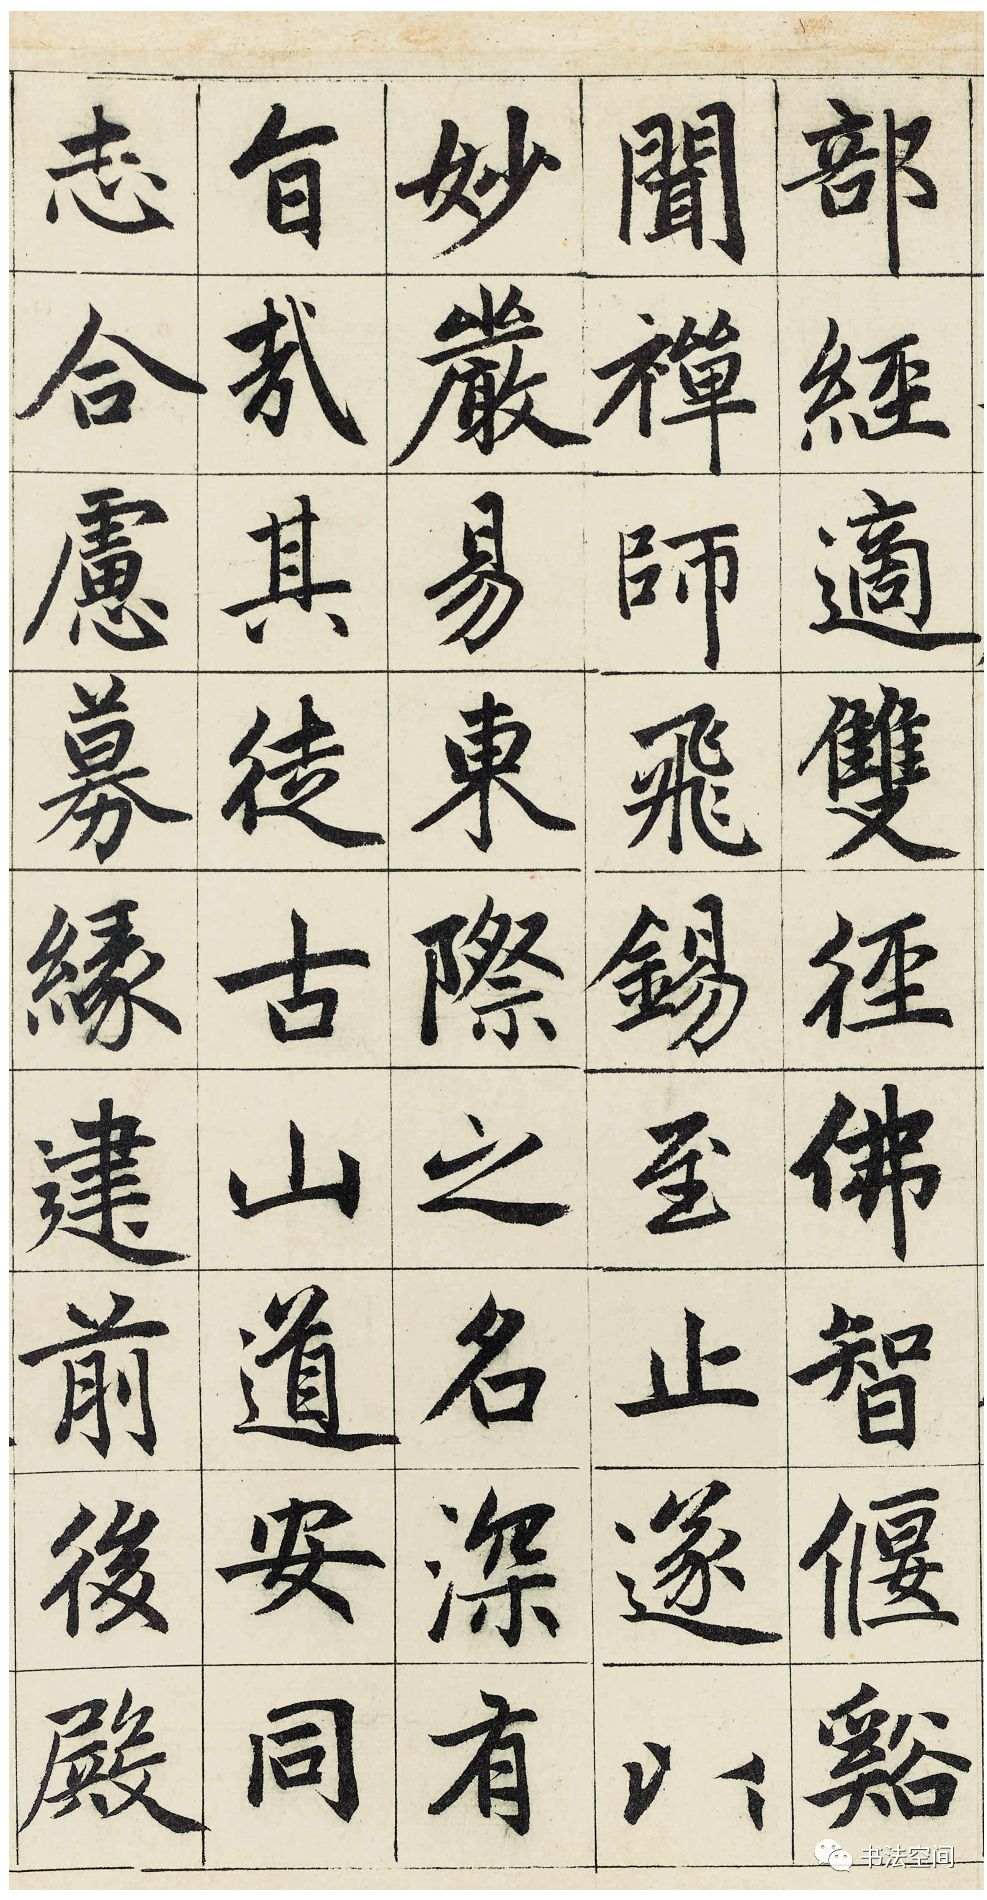 部經適雙徑佛智偃谿
聞禪師飛錫至止遂以
妙嚴易東際之名深有
旨哉其徒古山道安同
志合慮募緣建前後殿
书法空间